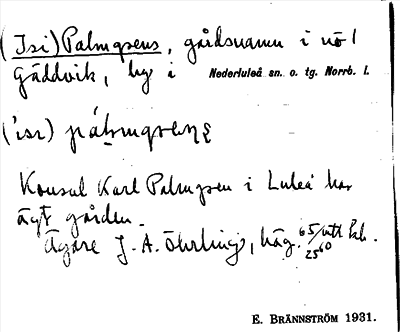 (Isi) Palmqrens, gårdsnamn i nö 1
Gäddvik, by i Nederluleå sn. o. tg. Norrb. l.
Konsul Karl Palmgren i Luleå har
ägt gården.
Ägare J. A. Öhrling, häg. 65/
2560
E. BRÄNNSTRÖM 1931.